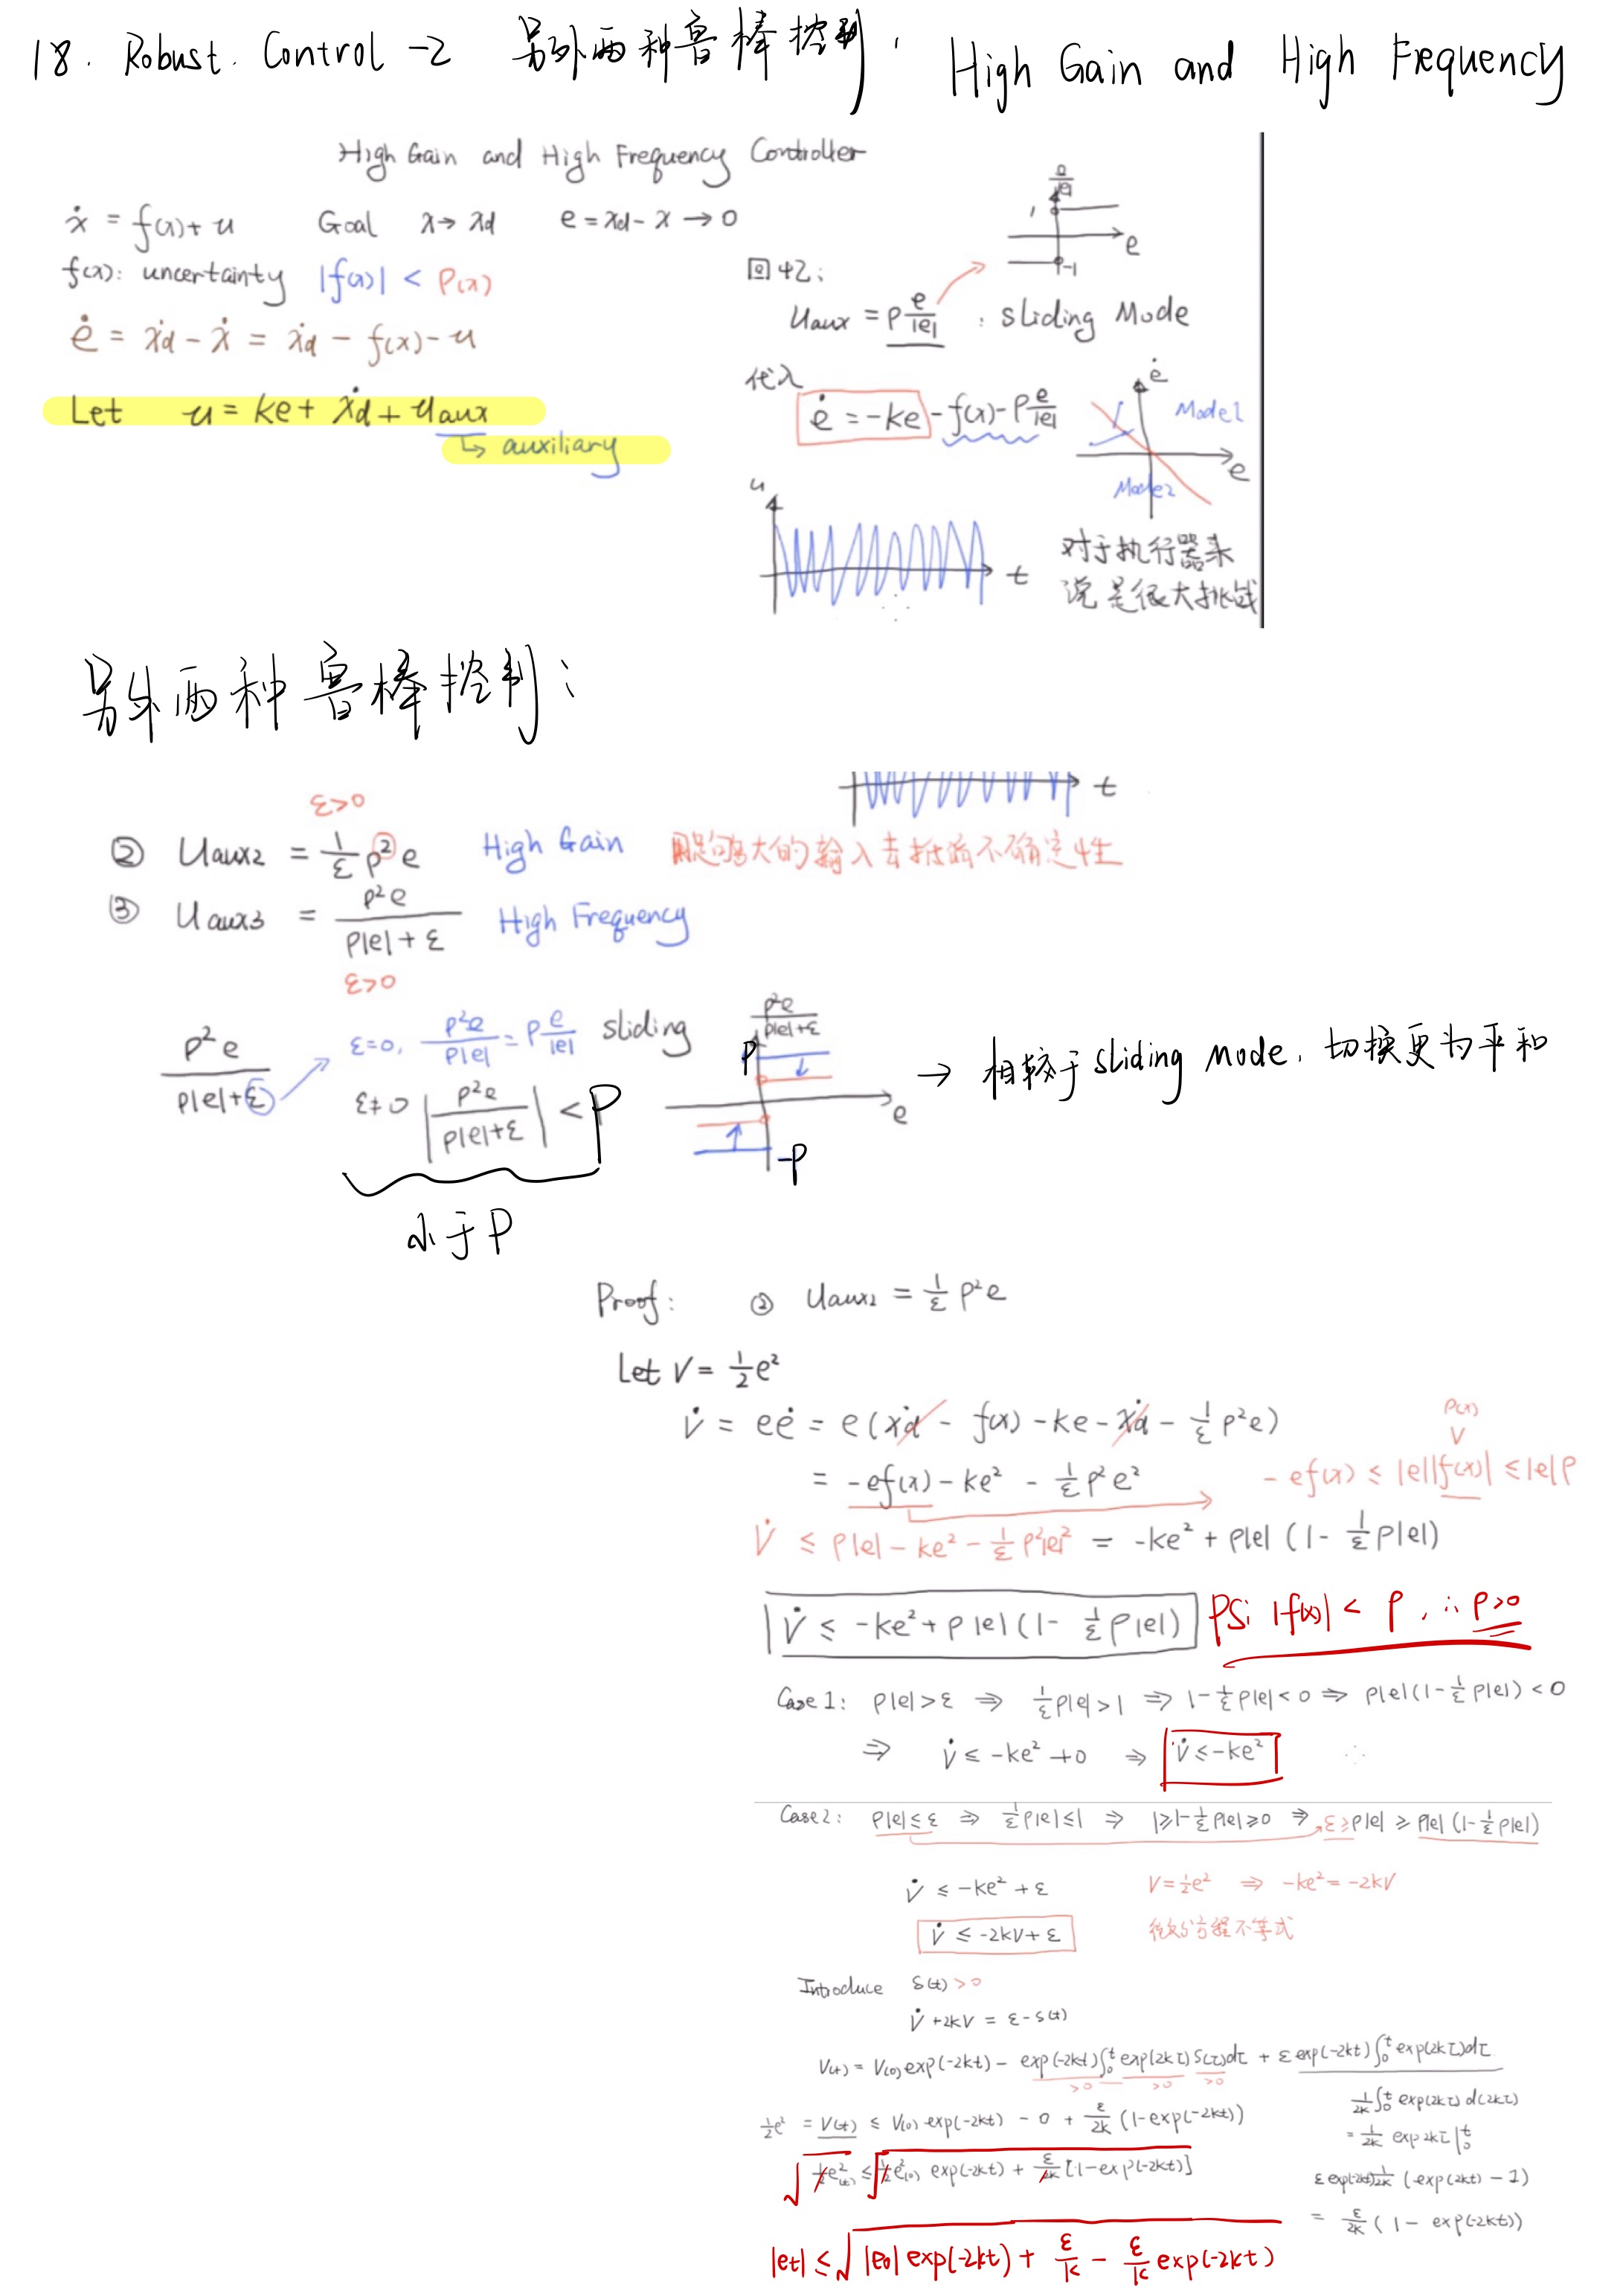 18. Robust. Control -2 另外两种鲁棒控制, High Gain and High Frequency
High Gain and High Frequency Controller
ẋ = f(x) + u Goal x → xd e = xd - x → 0
f(x): uncertainty |f(x)| < ρ(x)
ė = ẋd - ẋ = ẋd - f(x) - u
Let u = ke + ẋd + uaux
↳ auxiliary
e/|e|
1
e
-1
回忆:
uaux = ρ e/|e| : sliding Mode
代入
ė = -ke - f(x) - ρ e/|e|
ė
Mode1
e
Mode2
u
t
对于执行器来
说是很大挑战
另外两种鲁棒控制:
t
ε>0
② Uaux2 = 1/ε ρ² e High Gain 用足够大的输入去抵消不确定性
③ Uaux3 = ρ²e / (ρ|e| + ε) High Frequency
ε>0
ρ²e / (ρ|e|+ε) ε=0, ρ²e/ρ|e| = ρ e/|e| sliding
ε≠0 |ρ²e / (ρ|e|+ε)| < ρ
小于ρ
ρ²e / (ρ|e|+ε)
ρ
e
-ρ
→ 相较于sliding mode, 切换更为平和
Proof: ② Uaux2 = 1/ε ρ²e
Let V = ½e²
V̇ = eė = e(ẋd - f(x) - ke - ẋd - 1/ε ρ²e)
ρ(x)
V
= -ef(x) - ke² - 1/ε ρ²e² -ef(x) ≤ |e||f(x)| ≤ |e|ρ
V̇ ≤ ρ|e| - ke² - 1/ε ρ²|e|² = -ke² + ρ|e| (1 - 1/ε ρ|e|)
V̇ ≤ -ke² + ρ|e| (1 - 1/ε ρ|e|) PS: |f(x)| < ρ, ∴ ρ>0
Case 1: ρ|e|>ε ⇒ 1/ε ρ|e|>1 ⇒ 1-1/ε ρ|e|<0 ⇒ ρ|e|(1-1/ε ρ|e|) < 0
⇒ V̇ ≤ -ke² + 0 ⇒ V̇ ≤ -ke²
Case 2: ρ|e|≤ε ⇒ 1/ε ρ|e|≤1 ⇒ 1≥1-1/ε ρ|e|≥0 ⇒ ε≥ρ|e| ≥ ρ|e| (1-1/ε ρ|e|)
V̇ ≤ -ke² + ε V=½e² ⇒ -ke² = -2kV
V̇ ≤ -2kV + ε 微分方程不等式
Introduce S(t) >0
V̇ + 2kV = ε - S(t)
V(t) = V(0) exp(-2kt) - exp(-2kt)∫₀ᵗ exp(2kτ) S(τ)dτ + ε exp(-2kt)∫₀ᵗ exp(2kτ)dτ
>0 >0 >0
½e² = V(t) ≤ V(0) exp(-2kt) - 0 + ε/2k (1-exp(-2kt))
√½e²(t) ≤ √½e²(0) exp(-2kt) + ε/2k [1-exp(-2kt)]
|et| ≤ √|e0| exp(-2kt) + ε/k - ε/k exp(-2kt)
1/2k ∫₀ᵗ exp(2kτ) d(2kτ)
= 1/2k exp 2kτ |₀ᵗ
ε exp(-2kt) 1/2k (exp(2kt) - 1)
= ε/2k (1 - exp(-2kt))